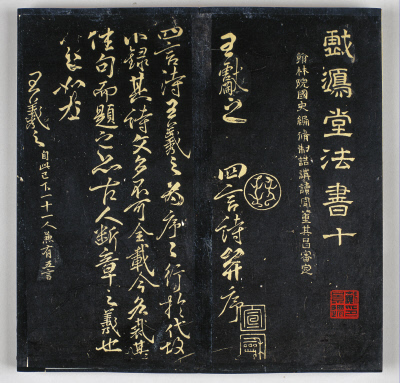 戲鴻堂法書十
翰林院國史編脩制誥講讀官董其昌審定
王獻之
四言詩并序
四言詩王羲之為序序行於代故
不錄其詩文多不可全載今各裁其
佳句而題之亦古人斷章之義也
王羲之
自此已下十一人兼有五言